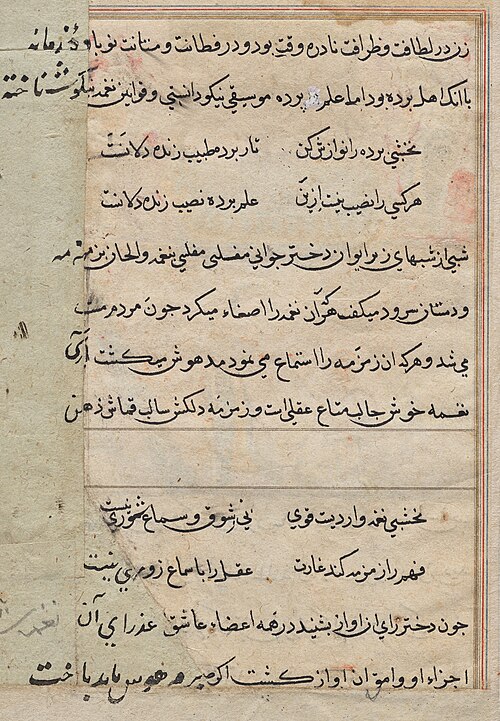 زن در لطافت و ظرافت نادره وقت بود و در فطانت و متانت نوباوه زمانه
با انک اهل پرده بود اما علم پرده موسیقی نیکو دانستی و قوانین نغمه نیکو شناخته
نخشبی پرده را نوازش کن تار پرده طبیب زنده دلانست
هر کسی را نصیب نیست ازین علم پرده نصیب زنده دلانست
شبی از شبهای زیر ایوان دختر جوانی مفلسی نغمه و الحان بزمزمه
و دستان سرود میکفت هر که آن نغمه را اصغاء میکرد چون مرده مست
می شد و هر که ان زمزمه را استماع می نمود مدهوش می کشت آری
نغمه خوش جالب متاع عقلی است و زمزمه دلکش سالب قماش ذهن
نخشبی نغمه واردیست قوی نی شوق و سماع شوری نیست
فهم را زمزمه کند غارت عقل را با سماع زوری نیست
چون دختر رای ان اواز بشنید در همه اعضاء عاشق عذرای آن
اجزاء او وامق ان اواز کشت اکر صبر و هوس باید باخت